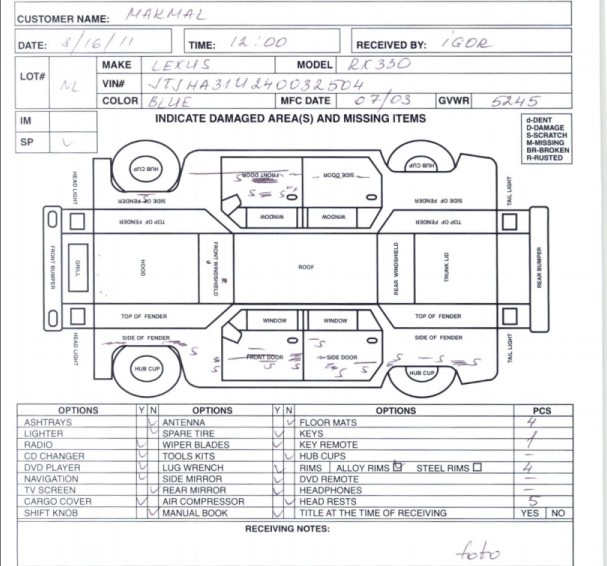 CUSTOMER NAME: MAKMAL
DATE: 8/16/11 TIME: 12:00 RECEIVED BY: IGOR
LOT# NL MAKE LEXUS MODEL RX330
VIN# JTJHA31U240032504
COLOR BLUE MFC DATE 07/03 GVWR 5245
IM
SP V
INDICATE DAMAGED AREA(S) AND MISSING ITEMS
d-DENT
D-DAMAGE
S-SCRATCH
M-MISSING
BR-BROKEN
R-RUSTED
HUB CUP HUB CUP
FRONT DOOR SIDE DOOR
S S S
HEAD LIGHT SIDE OF FENDER SIDE OF FENDER TAIL LIGHT
TOP OF FENDER WINDOW WINDOW TOP OF FENDER
FRONT BUMPER GRILL HOOD FRONT WINDSHIELD ROOF REAR WINDSHIELD TRUNK LID REAR BUMPER
TOP OF FENDER WINDOW WINDOW TOP OF FENDER
HEAD LIGHT SIDE OF FENDER SIDE OF FENDER TAIL LIGHT
S S FRONT DOOR S S SIDE DOOR S S S S
HUB CUP HUB CUP
OPTIONS Y N OPTIONS Y N OPTIONS PCS
ASHTRAYS ANTENNA FLOOR MATS 4
LIGHTER SPARE TIRE KEYS 1
RADIO WIPER BLADES KEY REMOTE
CD CHANGER TOOLS KITS HUB CUPS –
DVD PLAYER LUG WRENCH RIMS ALLOY RIMS STEEL RIMS 4
NAVIGATION SIDE MIRROR DVD REMOTE –
TV SCREEN REAR MIRROR HEADPHONES –
CARGO COVER AIR COMPRESSOR HEAD RESTS 5
SHIFT KNOB MANUAL BOOK TITLE AT THE TIME OF RECEIVING YES NO
RECEIVING NOTES:
foto